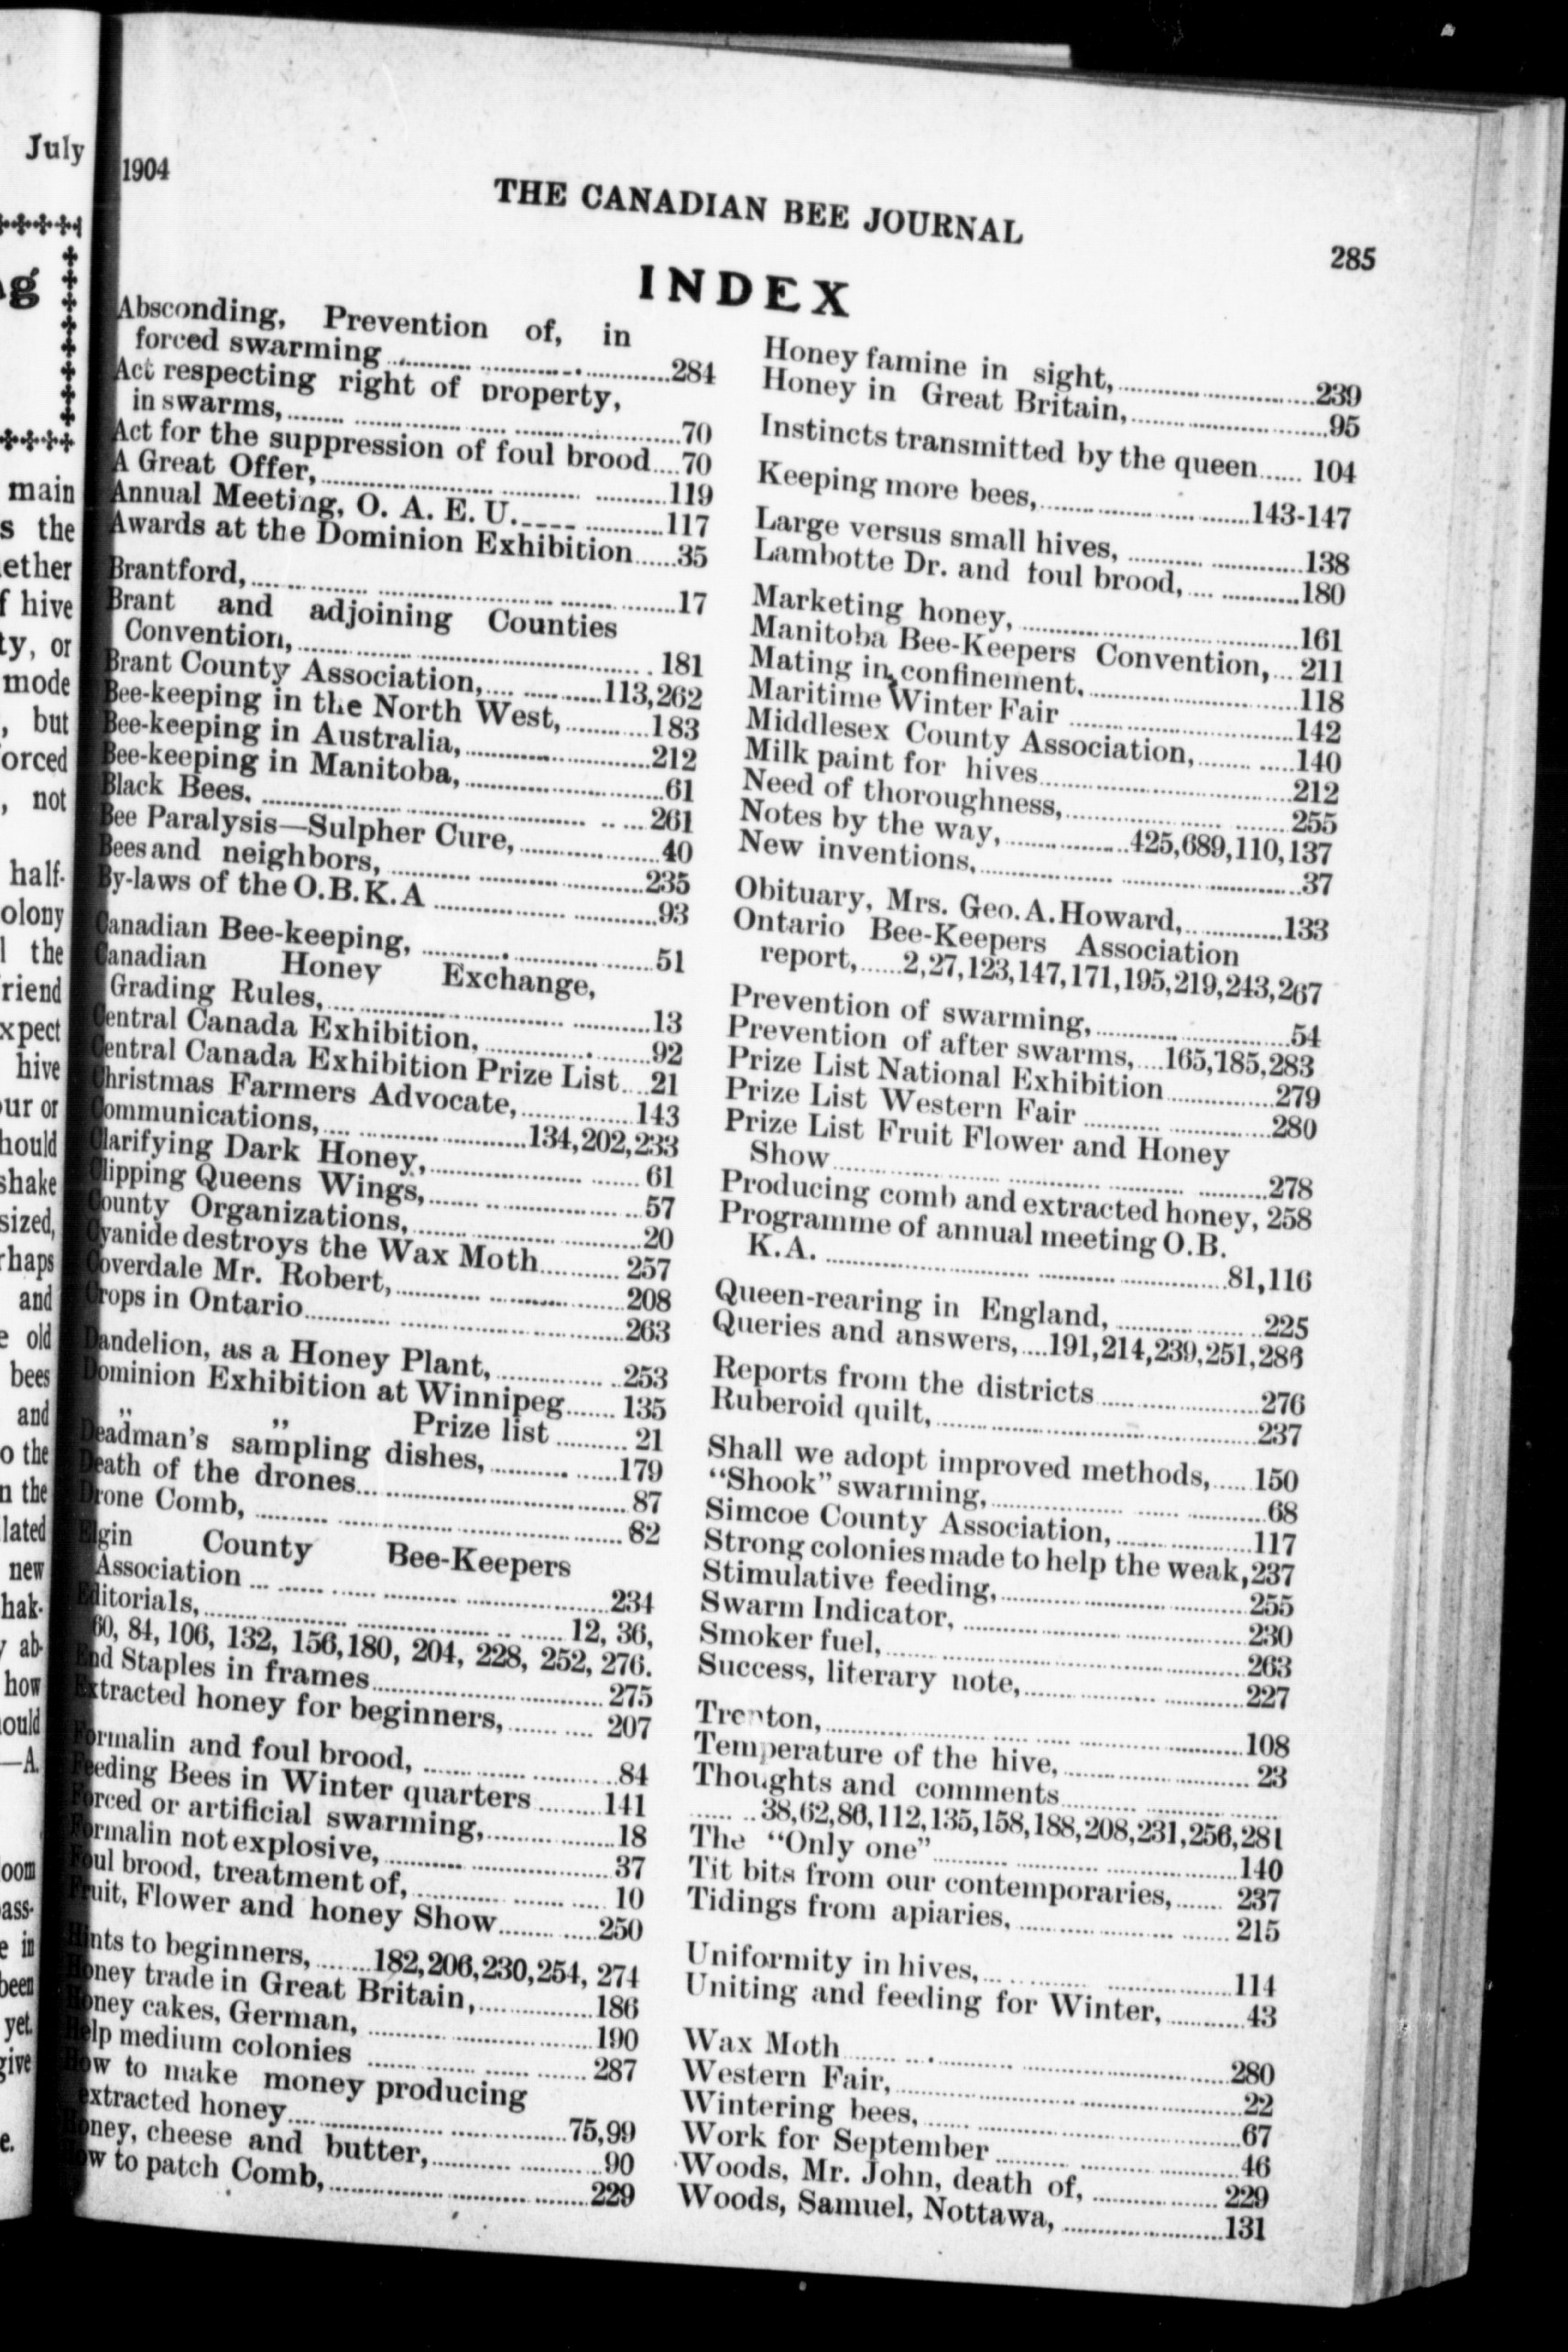 July
g
main
s the
ether
f hive
ty, or
mode
, but
orced
, not
half-
olony
l the
riend
xpect
hive
our or
hould
shake
sized,
rhaps
and
e old
bees
and
o the
n the
lated
new
hak-
y ab-
how
ould
—A.
oom
ass-
e in
been
yet.
give
e.
1904
THE CANADIAN BEE JOURNAL
285
INDEX
Absconding, Prevention of, in
forced swarming ..........284
Act respecting right of property,
in swarms,..........70
Act for the suppression of foul brood....70
A Great Offer,..........119
Annual Meeting, O. A. E. U...........117
Awards at the Dominion Exhibition......35
Brantford,..........17
Brant and adjoining Counties
Convention,..........181
Brant County Association,..........113,262
Bee-keeping in the North West,..........183
Bee-keeping in Australia,..........212
Bee-keeping in Manitoba,..........61
Black Bees...........261
Bee Paralysis—Sulpher Cure,..........40
Bees and neighbors,..........235
By-laws of the O.B.K.A ..........93
Canadian Bee-keeping, ..........51
Canadian Honey Exchange,
Grading Rules,..........13
Central Canada Exhibition,..........92
Central Canada Exhibition Prize List....21
Christmas Farmers Advocate,..........143
Communications,..........134,202,233
Clarifying Dark Honey,..........61
Clipping Queens Wings,..........57
County Organizations,..........20
Cyanide destroys the Wax Moth..........257
Coverdale Mr. Robert,..........208
Crops in Ontario..........263
Dandelion, as a Honey Plant,..........253
Dominion Exhibition at Winnipeg.......135
,, ,, Prize list ..........21
Deadman's sampling dishes,..........179
Death of the drones..........87
Drone Comb, ..........82
Elgin County Bee-Keepers
Association ..........234
Editorials,..........12, 36,
60, 84, 106, 132, 156,180, 204, 228, 252, 276.
End Staples in frames..........275
Extracted honey for beginners,..........207
Formalin and foul brood, ..........84
Feeding Bees in Winter quarters .........141
Forced or artificial swarming,..........18
Formalin not explosive,..........37
Foul brood, treatment of,..........10
Fruit, Flower and honey Show..........250
Hints to beginners,........182,206,230,254, 274
Honey trade in Great Britain,..........186
Honey cakes, German, ..........190
Help medium colonies ..........287
How to make money producing
extracted honey..........75,99
Honey, cheese and butter,..........90
How to patch Comb,..........229
Honey famine in sight,..........239
Honey in Great Britain,..........95
Instincts transmitted by the queen...... 104
Keeping more bees,..........143-147
Large versus small hives, ..........138
Lambotte Dr. and foul brood,..........180
Marketing honey,..........161
Manitoba Bee-Keepers Convention,...211
Mating in confinement,..........118
Maritime Winter Fair ..........142
Middlesex County Association,..........140
Milk paint for hives..........212
Need of thoroughness,..........255
Notes by the way,..........425,689,110,137
New inventions,..........37
Obituary, Mrs. Geo. A. Howard,..........133
Ontario Bee-Keepers Association
report,......2,27,123,147,171,195,219,243,267
Prevention of swarming,..........54
Prevention of after swarms,....165,185,283
Prize List National Exhibition..........279
Prize List Western Fair ..........280
Prize List Fruit Flower and Honey
Show..........278
Producing comb and extracted honey, 258
Programme of annual meeting O.B.
K.A. ..........81,116
Queen-rearing in England, ..........225
Queries and answers,....191,214,239,251,286
Reports from the districts ..........276
Ruberoid quilt,..........237
Shall we adopt improved methods,......150
"Shook" swarming,..........68
Simcoe County Association,..........117
Strong colonies made to help the weak,237
Stimulative feeding,..........255
Swarm Indicator, ..........230
Smoker fuel,..........263
Success, literary note,..........227
Trenton,..........108
Temperature of the hive,..........23
Thoughts and comments..........
........38,62,86,112,135,158,188,208,231,256,281
The "Only one"..........140
Tit bits from our contemporaries,....... 237
Tidings from apiaries,..........215
Uniformity in hives,..........114
Uniting and feeding for Winter,..........43
Wax Moth..........280
Western Fair,..........22
Wintering bees,..........67
Work for September..........46
Woods, Mr. John, death of, ..........229
Woods, Samuel, Nottawa, ..........131